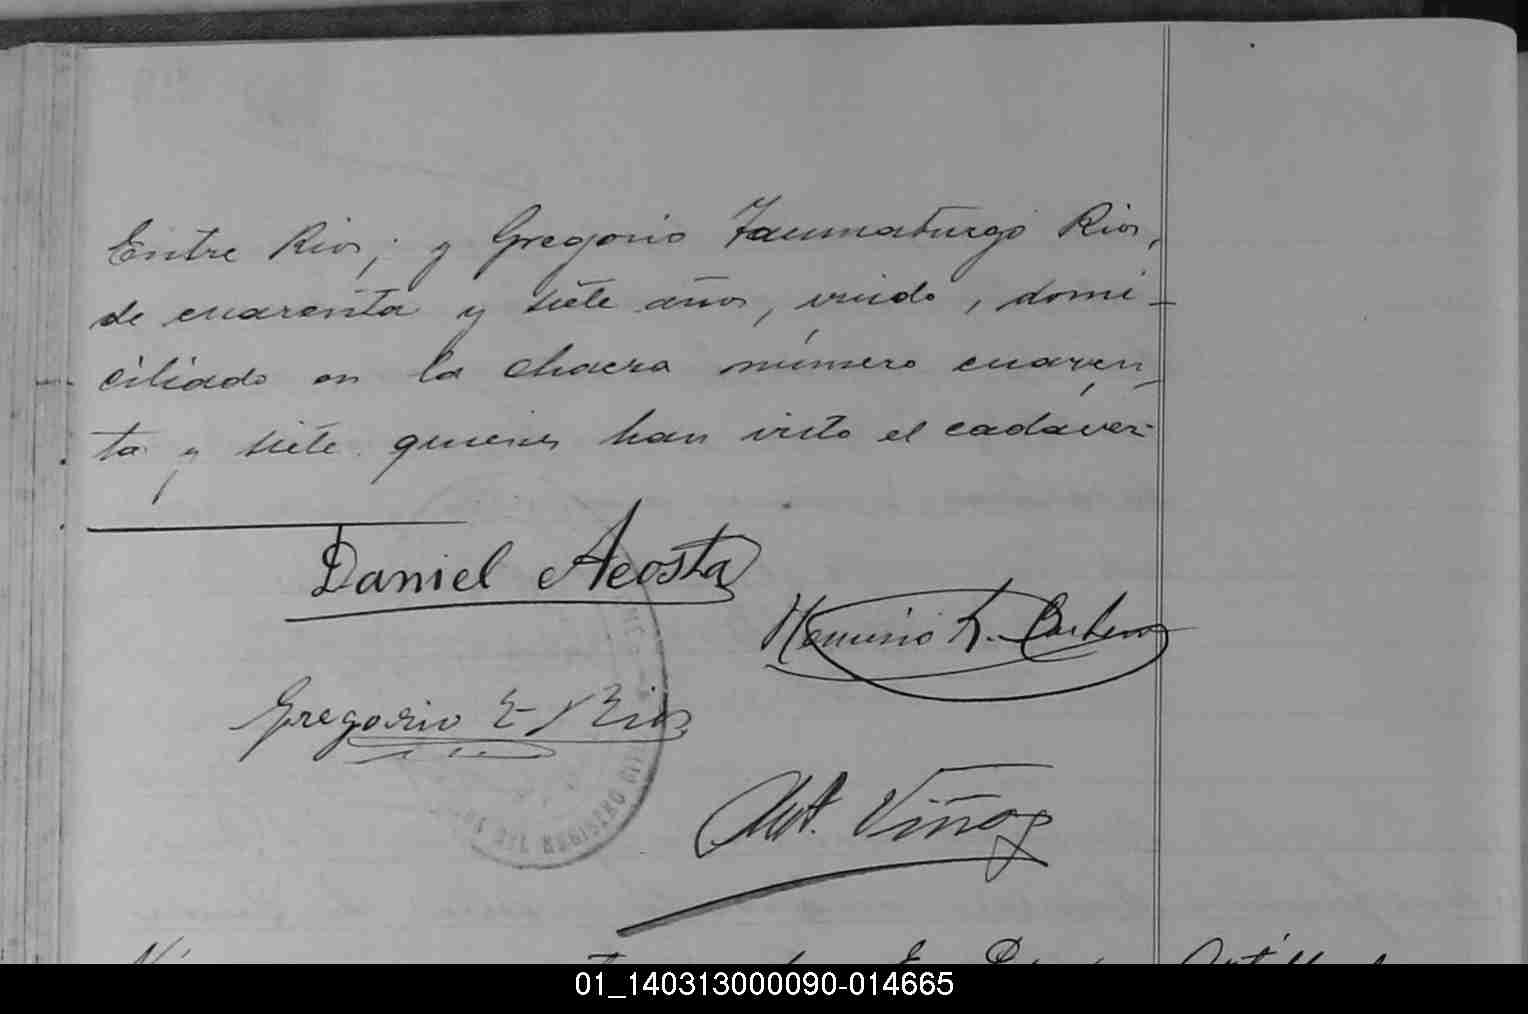 Entre Rios; y Gregorio Taumaturgo Rios,
de cuarenta y siete años, viudo, domi-
ciliado en la chacra número cuaren-
ta y siete, quienes han visto el cadáver.
Daniel Acosta
L.
Gregorio T Rios
Ant. Viñas
REGISTRO CIVIL
01_140313000090-014665